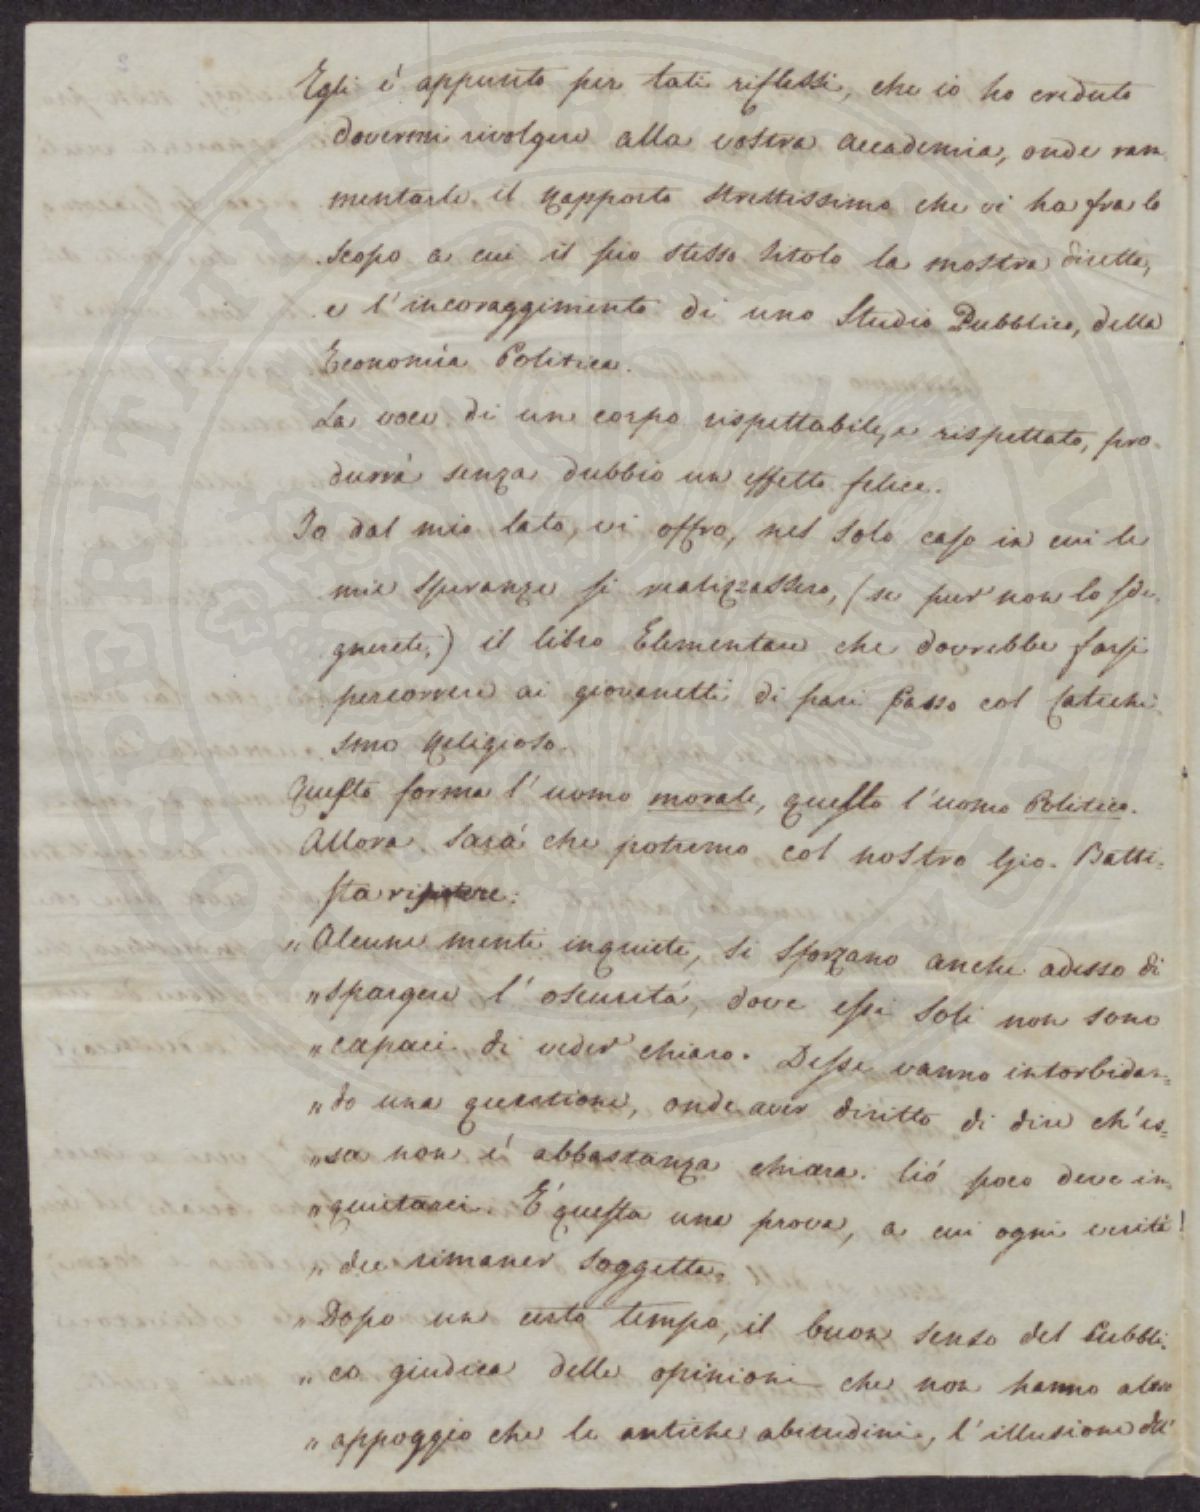 Egli é appunto per tali riflessi, che io ho creduto
dovermi rivolgere alla vostra Accademia, onde ram
mentarle il Rapporto strettissimo che vi ha fra lo
Scopo a cui il suo stesso titolo la mostra diretta,
e l'incoraggimento di uno Studio Pubblico, della
Economia Politica.
La voce di un corpo rispettabile, e rispettato, pro-
durrà senza dubbio un effetto felice.
Io dal mio lato, vi offro, nel solo caso in cui le
mie speranze si realizzassero, (se pur non lo sde-
gnerete,) il libro Elementare che dovrebbe farsi
percorrere ai giovanetti di pari Passo col Catechi
smo Religioso.
Questo forma l'uomo morale, quello l'uomo Politico.
Allora sarà che potremo col nostro Gio. Batti=
sta ripetere:
„ Alcune menti inquiete, si sforzano anche adesso di
„ spargere l'oscurità, dove essi soli non sono
„ capaci di veder chiaro. Desse vanno intorbidan=
„ do una questione, onde aver diritto di dire ch'es=
„ sa non é abbastanza chiara. Ció poco deve in=
„ quietarci. E' questa una prova, a cui ogni verità
„ dee rimaner soggetta.
„ Dopo un certo tempo, il buon senso del Pubbli-
„ co giudica delle opinioni che non hanno altro
„ appoggio che le antiche abitudini, l'illusione dell'